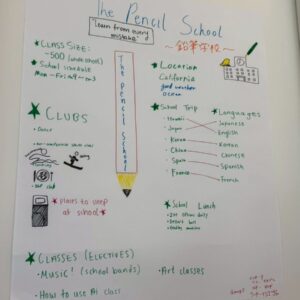 The Pencil School
"Learn from every
mistake"
～鉛筆学校～
CLASS SIZE:
~500 (whole school)
School schedule
Mon ~ Fri
Location
California
good weather
ocean
The Pencil School
CLUBS
• Dance
School Trip
• Hawaii
• Japan
• Korea
• China
• Spain
• France
Languages
Japanese
English
Korean
Chinese
Spanish
French
places to sleep
at school
School Lunch
CLASSES (ELECTIVES)
• Music! (school bands)
• Art classes
• How to use AI class